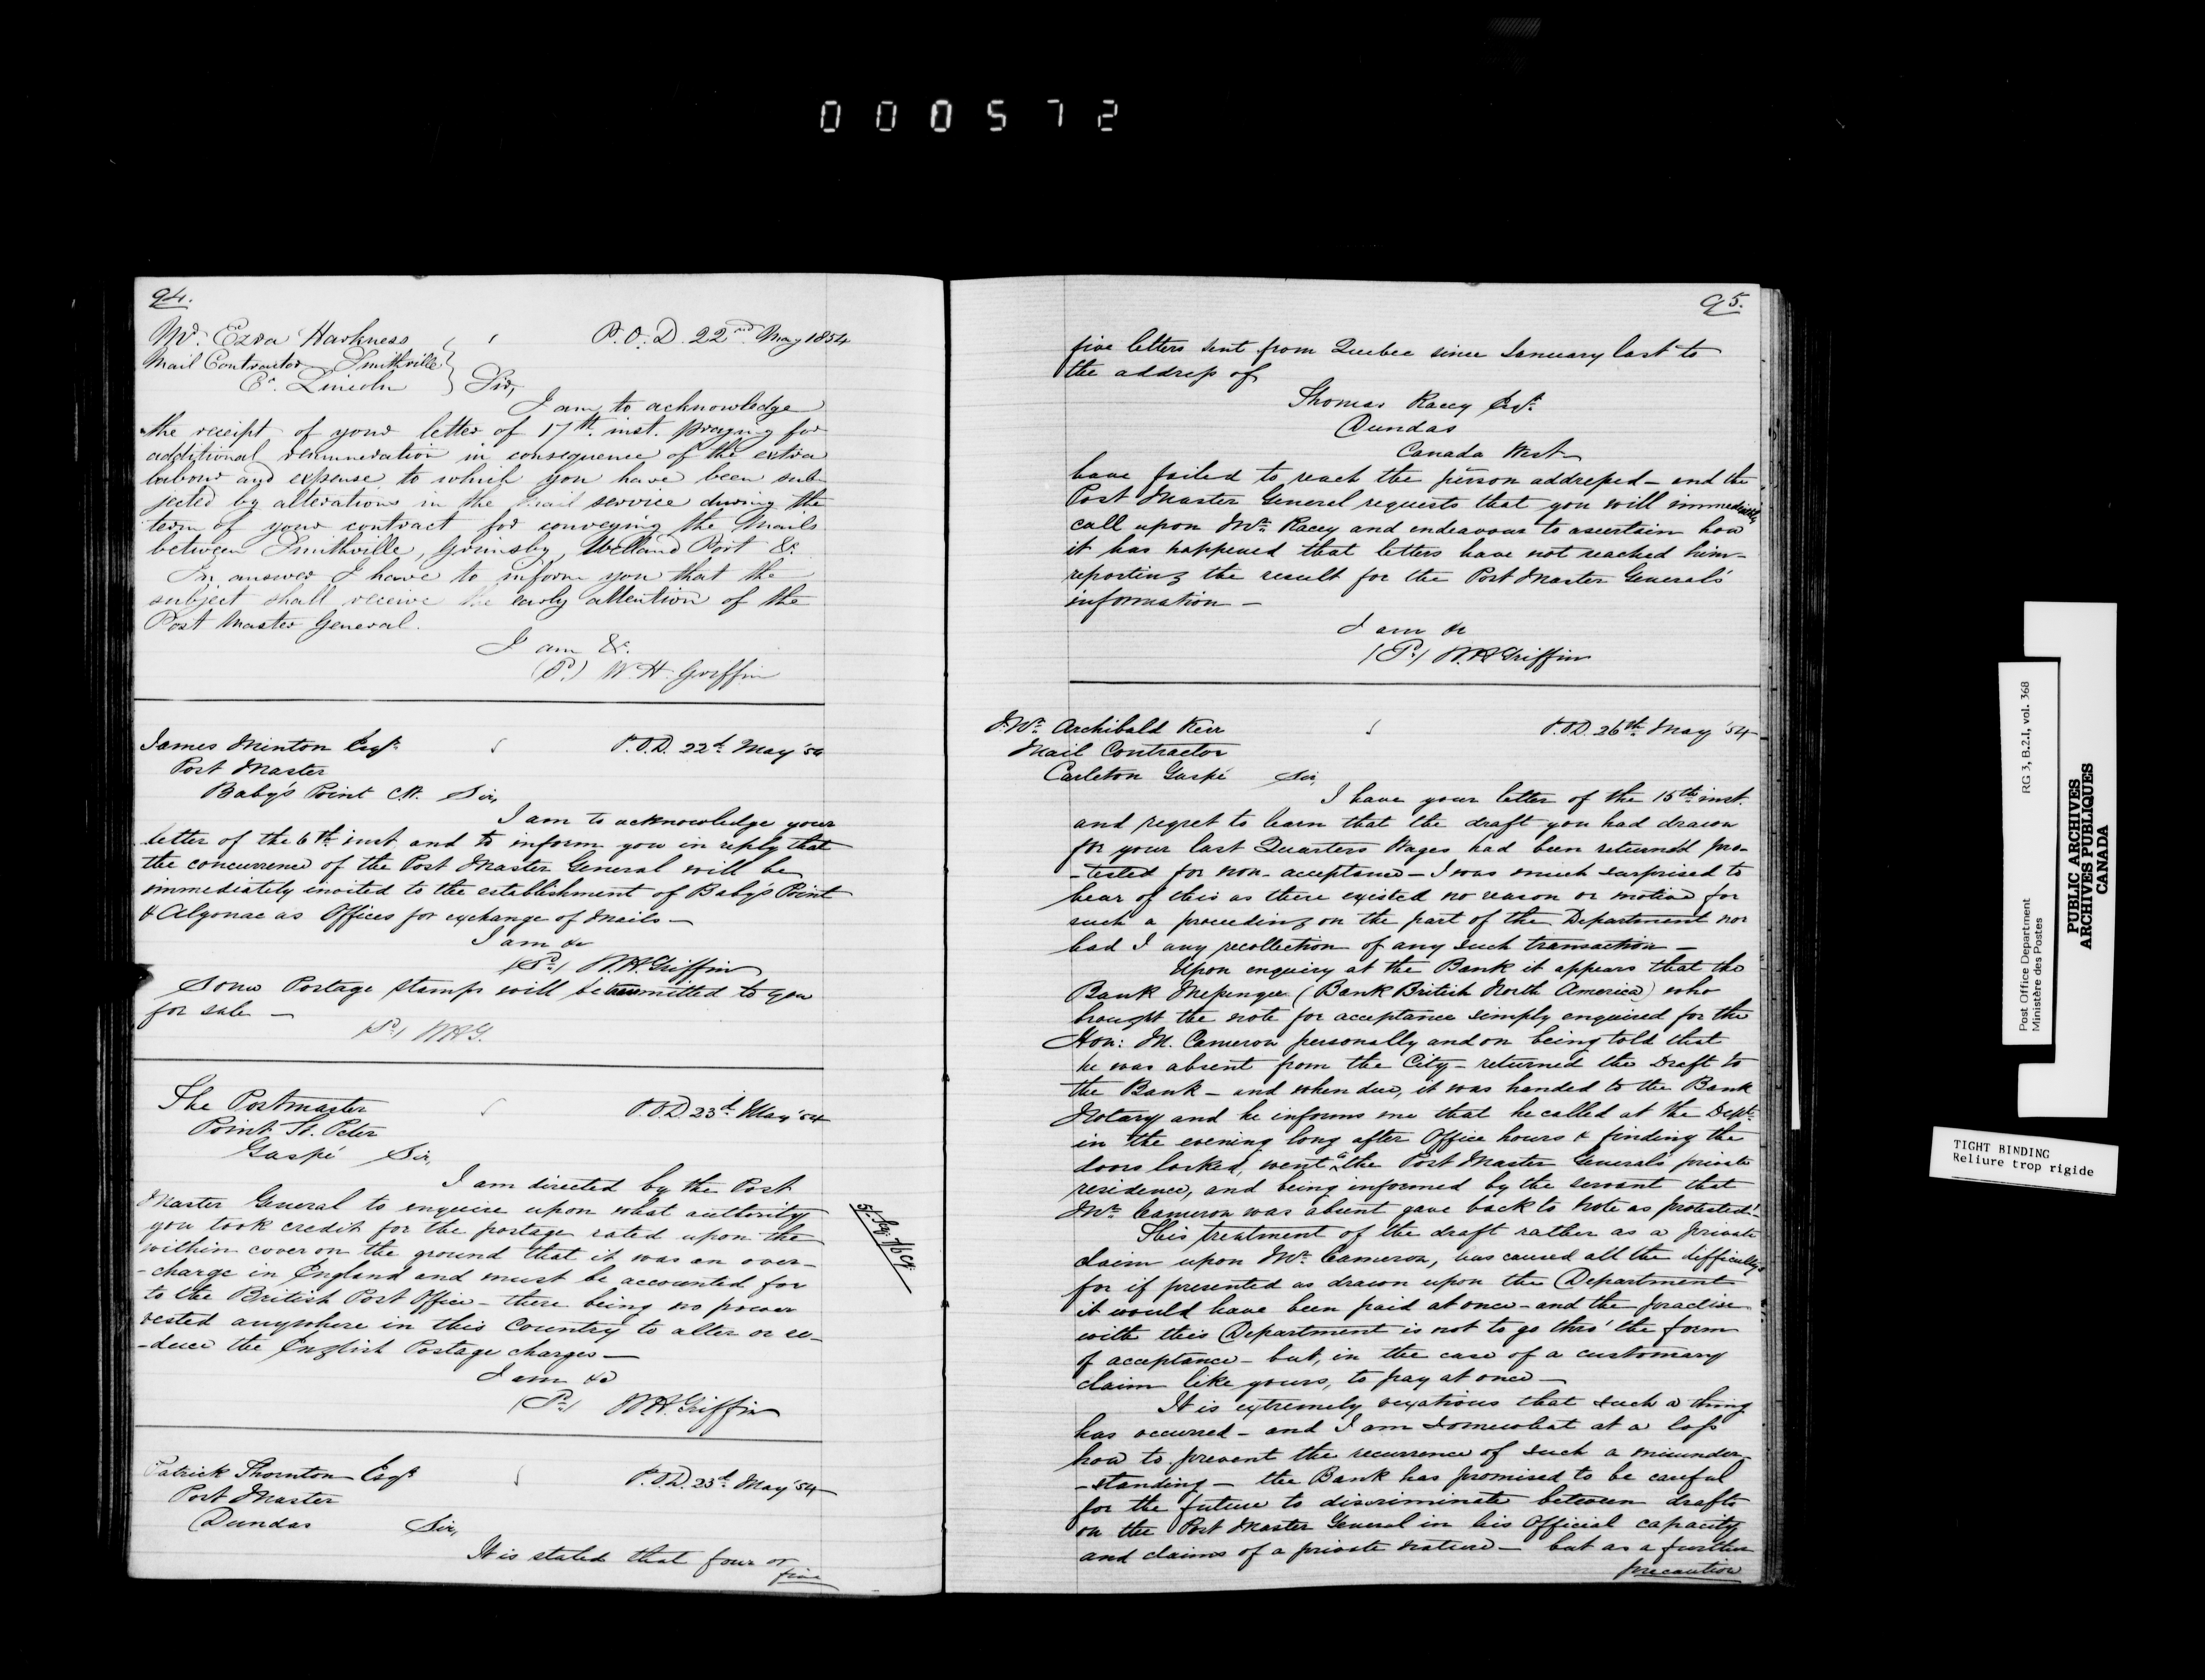 000572
94.
Mr. Ezra Harkness P.O.D. 22nd May 1854
Mail Contractor Smithville
Co. Lincoln Sir,
I am to acknowledge
the receipt of your letter of 17th inst. praying for
additional remuneration in consequence of the extra
labour and expense to which you have been sub-
jected by alterations in the mail service during the
term of your contract for conveying the Mails
between Smithville, Grimsby, Welland Port &c.
In answer I have to inform you that the
subject shall receive the early attention of the
Post Master General.
I am &c.
W. H. Griffin
James Minton Esqr. P.O.D. 22d May '54
Post Master
Baby's Point C.W. Sir,
I am to acknowledge your
letter of the 6th inst and to inform you in reply that
the concurrence of the Post Master General will be
immediately invited to the establishment of Baby's Point
& Algonac as Offices for exchange of Mails —
I am &c
W.H. Griffin
Some Postage Stamps will be transmitted to you
for sale —
W.H.G.
The Postmaster P.O.D. 23d May '54
Point St. Peter
Gaspé Sir,
I am directed by the Post
Master General to enquire upon what authority
you took credit for the postage rated upon the
within cover on the ground that it was an over-
-charge in England and must be accounted for
to the British Post Office - there being no power
vested anywhere in this Country to alter or re-
-duce the English Postage charges —
I am &c
W.H. Griffin
Patrick Thornton Esqr P.O.D. 23d May '54
Post Master
Dundas Sir,
It is stated that four or
five
95.
five letters sent from Quebec since January last to
the address of
Thomas Racey Esqr.
Dundas
Canada West
have failed to reach the person addressed - and the
Post Master General requests that you will immediately
call upon Mr. Racey and endeavour to ascertain how
it has happened that letters have not reached him -
reporting the result for the Post Master General's
information —
I am &c
W.H. Griffin
Mr. Archibald Kerr P.O.D. 26th May '54
Mail Contractor
Carleton Gaspé Sir,
I have your letter of the 15th inst.
and regret to learn that the draft you had drawn
for your last Quarters Wages had been returned pro-
-tested for non-acceptance - I was much surprised to
hear of this as there existed no reason or motive for
such a proceeding on the part of the Department nor
had I any recollection of any such transaction —
Upon enquiry at the Bank it appears that the
Bank Messenger (Bank British North America) who
brought the note for acceptance simply enquired for the
Hon: M. Cameron personally and on being told that
he was absent from the City - returned the Draft to
the Bank - and when due, it was handed to the Bank
Notary and he informs me that he called at the Dept.
in the evening long after Office hours & finding the
doors locked, went to the Post Master General's private
residence, and being informed by the servant that
Mr. Cameron was absent gave back to note as protested!-
This treatment of the draft rather as a private
claim upon Mr. Cameron, has caused all the difficulty
for if presented as drawn upon the Department
it would have been paid at once - and the practise
with this Department is not to go thro' the form
of acceptance - but, in the case of a customary
claim like yours, to pay at once —
It is extremely vexatious that such a thing
has occurred - and I am somewhat at a loss
how to prevent the recurrence of such a misunder-
-standing - the Bank has promised to be careful
for the future to discriminate between drafts
on the Post Master General in his Official capacity
and claims of a private nature - but as a further
precaution
Post Office Department RG 3, B.2.I, vol. 368
Ministère des Postes
PUBLIC ARCHIVES
ARCHIVES PUBLIQUES
CANADA
TIGHT BINDING
Reliure trop rigide